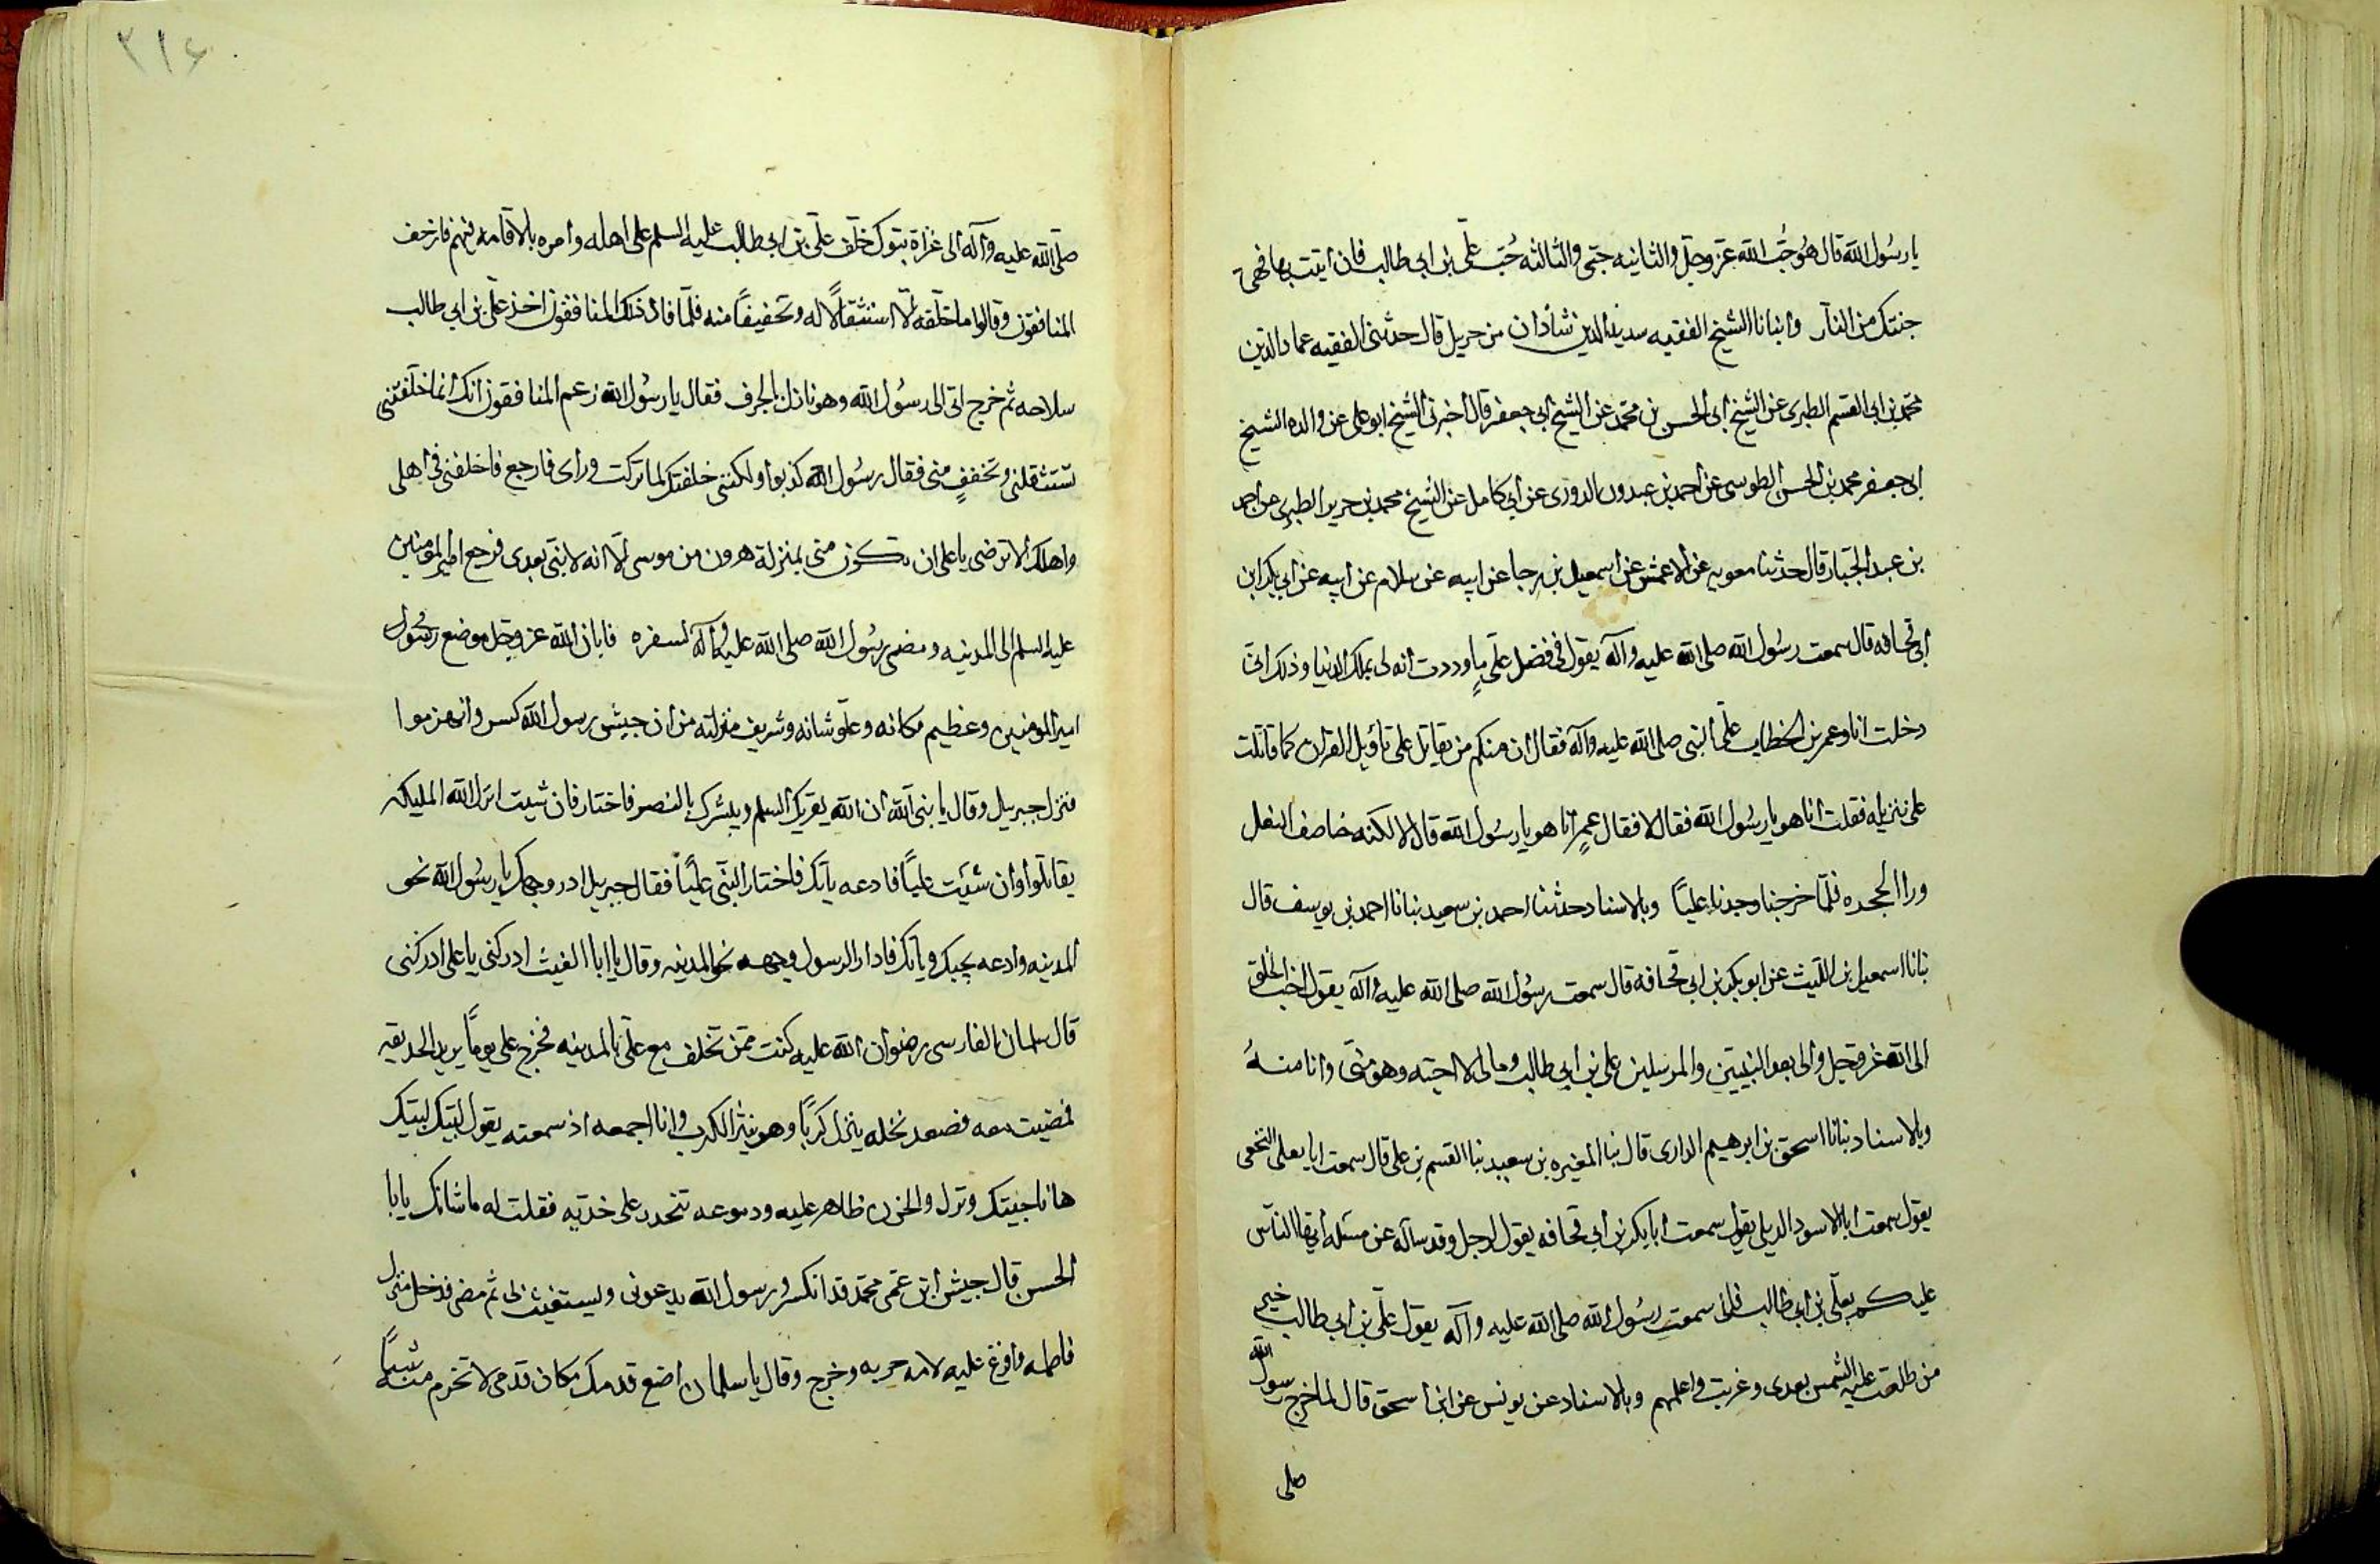 يا رسُول الله قال هُو حُبّ الله عزّ وجلّ والثانيه حبّي والثالثه حُبّ علّي بن ابي طالب فان اتيت بها فهي
جنتك من النار وانبانا الشيخ الفقيه سديد الدين شاذان من جبريل قال حدثني الفقيه عماد الدين
محمّد بن ابي القسم الطبري عن الشيخ ابي الحسن بن محمّد عن الشيخ ابي جعفر قال اخبرني الشيخ ابو علي عن والده الشيخ
ابي جعفر محمد بن الحسن الطوسي عن احمد بن عبدون الدوري عن ابي كامل عن الشيخ محمد بن جرير الطبري عن احمد
بن عبد الجبّار قال حدثنا معويه عن الاعمش عن اسمعيل بن رجا عن ابيه عن سلام عن ابيه عن ابي بكر ابن
ابي قحافه قال سمعت رسُول الله صلى الله عليه وآله يقول في فضل علّي ما وددت انه لي بملك الدنيا وذلك انّي
دخلت انا وعمر بن الخطاب علّى النبي صلى الله عليه وآله فقال ان منكم من يقاتل على تاويل القران كما قاتلت
على تنزيله فقلت انا هو يا رسُول الله فقال لا فقال عمر انا هو يا رسُول الله قال لا لكنه خاصف النعل
ورا الحجره فلمّا خرجنا وجدنا عليّاً وبالاسناد حدثنا احمد بن سعيد نبانا احمد بن يوسف قال
نبانا اسمعيل بن الليث عن ابو بكر بن ابي قحافه قال سمعت رسُول الله صلى الله عليه وآله يقول احب الخلق
الى الله عزّ وجلّ والى بعد النبيّين والمرسلين علي بن ابي طالب ومالي لا احبّه وهو منّي وانا منهُ
وبالاسناد نبانا اسحق بن ابرهيم الداري قال نبا المغيره بن سعيد نبا القسم بن علي قال سمعت ابا يعلى النخعي
يقول سمعت ابا الاسود الديلي يقول سمعت ابا بكر بن ابي قحافه يقول لرجل وقد ساله عن مسئله ايها الناس
عليكم بعلّي بن ابي طالب فاني سمعت رسُول الله صلى الله عليه وآله يقول علّي بن ابي طالب خير
من طلعت عليه الشمس بعدي وغربت واعلمهم وبالاسناد عن يونس عن ابن اسحق قال لما خرج رسول الله
صلى
٣١۶
صلّى الله عليه وآله الى غزاة تبوك خلّف علّي بن ابي طالب عليه السلم على اهله وامره بالاقامه فيهم فارجف
المنافقون وقالوا ما خلّفه الّا استثقالاً له وتخفيفاً منه فلمّا قال ذلك المنافقون اخذ علّي بن ابي طالب
سلاحه ثم خرج اتى الى رسُول الله وهو نازل بالجرف فقال يا رسُول الله زعم المنافقون انك انما خلّفتني
تستثقلني وتخفف مني فقال رسُول الله كذبوا ولكنني خلفتك لما تركت وراي فارجع فاخلفني في اهلي
واهلك الا ترضى يا علي ان تكون منّي بمنزلة هرون من موسى الّا انه لا نبّي بعدي فرجع امير المومنين
عليه السلم الى المدينه ومضى رسُول الله صلى الله عليه وآله لسفره فابان الله عز وجلّ موضع رسُول
امير المومنين وعظيم مكانه وعلّو شانه وشريف منزلته من ان جيش رسول الله كسر وانهزموا
فنزل جبريل وقال يا نبي الله ان الله يقريك السلم ويبشرك بالنصر فاختار فان شيت انزل الله المليكه
يقاتلوا وان شئت عليّاً فادعه ياتك فاختار النبّي عليّاً فقال جبريل ادر وجهك يا رسُول الله نحو
المدينه وادعه يجيبك وياتك فادار الرسول وجهه نحو المدينه وقال يا ابا الغيث ادركني يا علي ادركني
قال سلمان الفارسي رضوان الله عليه كنت ممّن تخلّف مع علّي بالمدينه فخرج علي يوماً يريد الحديقه
فمضيت معه فصعد نخله ينزل كرباً وهو ينثر الكرب وانا اجمعه اذ سمعته يقول لبّيك لبّيك
ها انا جيتك ونزل والحزن ظاهر عليه ودموعه تتحدر على خدّيه فقلت له ما شانك يا ابا
الحسن قال جيش ابن عمّي محمّد قد انكسر ورسول الله يدعوني ويستغيث بي ثم مضى فدخل منزل
فاطمه وافرغ عليه لامه حربه وخرج وقال يا سلمان اضع قدمك مكان قدمي لا تخرم منه شيئاً